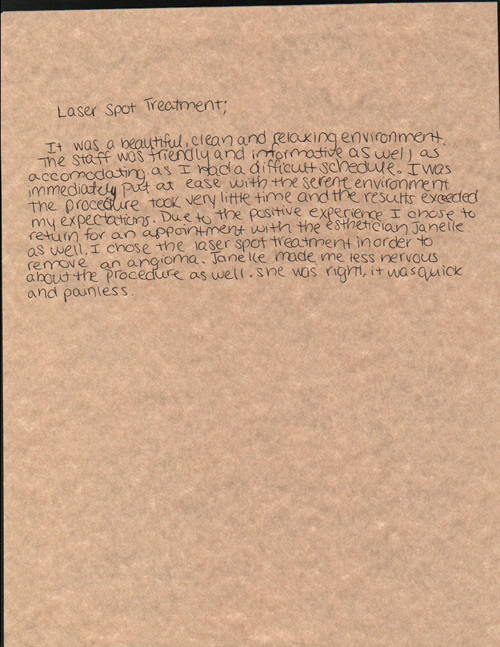 Laser Spot Treatment;
It was a beautiful, clean and relaxing environment.
The staff was friendly and informative as well as
accomodating as I had a difficult schedule. I was
immediately put at ease with the serene environment
The procedure took very little time and the results exceeded
my expectations. Due to the positive experience I chose to
return for an appointment with the esthetician Janelle
as well. I chose the laser spot treatment in order to
remove an angioma. Janelle made me less nervous
about the procedure as well. She was right, it was quick
and painless.